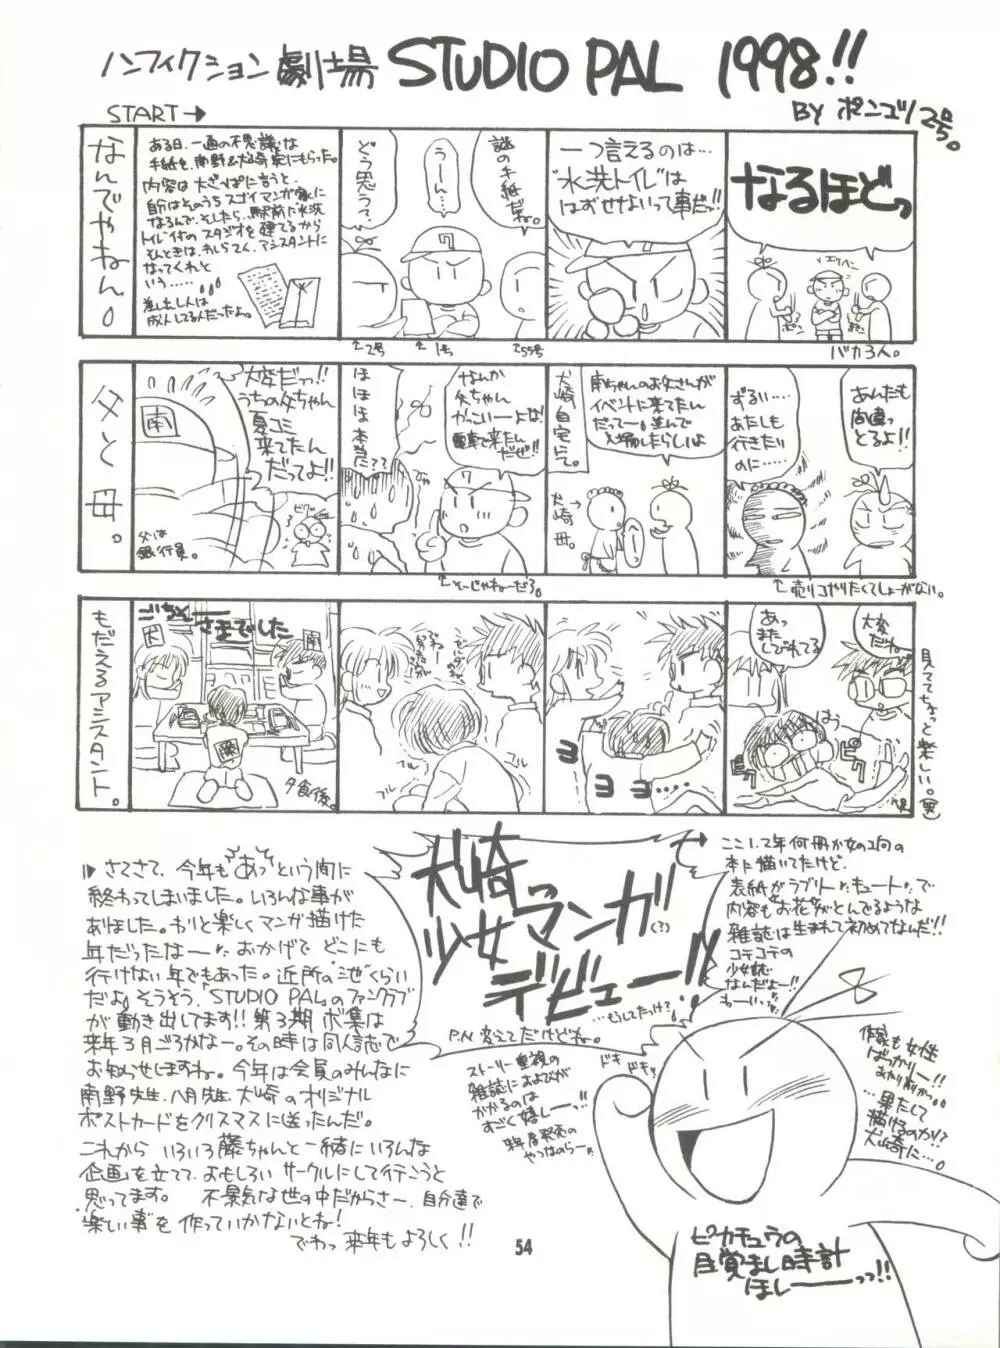 ノンフィクション劇場 STUDIO PAL 1998!!
BY ポンコツ2号。
START→
なんでやねん。
ある日、一通の不思議な
手紙を、南野&犬崎家にもらった。
内容は大ざっぱに言うと、
自分はそのうちスゴイマンガ家に
なるんで、そしたら、駅前に水洗
トイレ付のスタジオを建てるから
そんときは、
アシスタントに
なってくれと
いう……。
差し出し人は
成人してる人だったよ。
謎の手紙だね。
うーん…
どう思うって、
←2号
←1号
←55号
一つ言えるのは…
"水洗トイレ"は
はずせないって事だっ!!
なるほどっ
バカ3人。
父と母。
大変だっ!!
うちの父ちゃん
夏コミ
来てたん
だってよ!!
南
父は
銀行員。
なんか
父ちゃん
かっこいーよな!
電車で来たん
だぜ!!
ほほほ本当だ??
←そーじゃねーだろ。
犬崎自宅にて。
南ちゃんのお父さんが
イベントに来てたん
だってー。並んで
入場したらしいよ
犬崎母。
ずるい…
あたしも
行きたい
のに……
あんたも
間違っ
とるよ!!
←売り子やりたくてしょーがない。
もだえるアシスタント。
ごちそーさまでした
犬
南
夕食後。
ブル
ブル
ヨ
ヨ
あっ
また
しびれてる
大変
だね。
はう
ピク
見ててちょっと楽しい。(笑)
さてさて、今年もあっという間に
終わってしまいました。いろんな事が
ありました。わりと楽しくマンガ描けた
年だったなー。おかげでどこにも
行けない年でもあった。近所の池ぐらい
だよ。そうそう、「STUDIO PAL」のファンクラブ
が動き出してます!!第3期ボ集は
来年3月ごろかなー。その時は同人誌で
お知らせしますね。今年は会員のみんなに
南野先生、八月先生、犬崎のオリジナル
ポストカードをクリスマスに送ったんだ。
これからいろいろ藤ちゃんと一緒にいろんな
企画を立てて、おもしろいサークルにして行こうと
思ってます。 不景気な世の中だからさー、自分達で
楽しい事を作っていかないとね!
でわっ来年もよろしく!!
犬崎
少女マンガ(?)
デビュー!!
…もうしてたっけ?
P.N変えてだけどね。
ストーリー重視の
雑誌におよびが
かかるのは
すごく嬉しーっ!!
来年発売の
やつなのらー。
ドキ
ドキッ
ここ1、2年何冊か女の子向の
本に描いてたけど、
表紙がラブリーでキュートで
内容もお花がとんでるような
雑誌は生まれて初めてなんだ!!
コテコテの
少女誌
なんだよー!!
わーいっ
作家も女性
ばっかりー!!
あたり前か…
…果たして
描けるのか!?
犬崎に…。
ピカチュウの
目覚まし時計
ほしーーーっっ!!
54